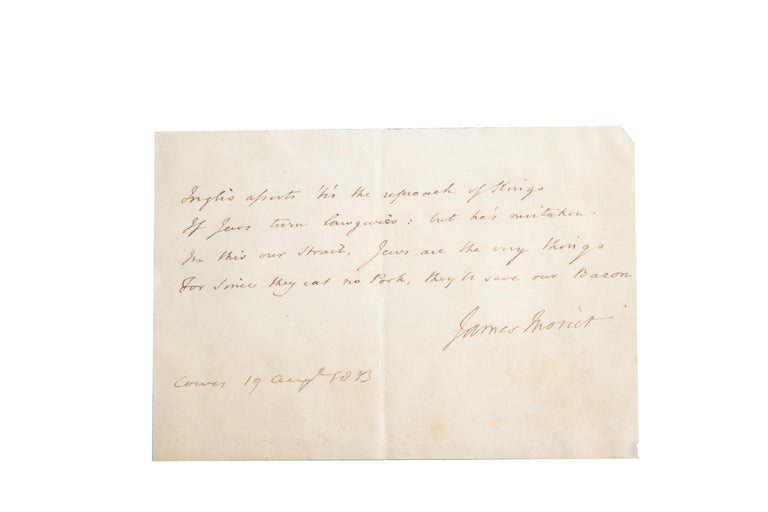 Inglis asserts 'tis the reproach of Kings
If Jews turn lawgivers: but he's mistaken.
In this our Strait, Jews are the very things
For since they eat no Pork, they'll save our Bacon
James Morier
Cowes 19 Augt 1833